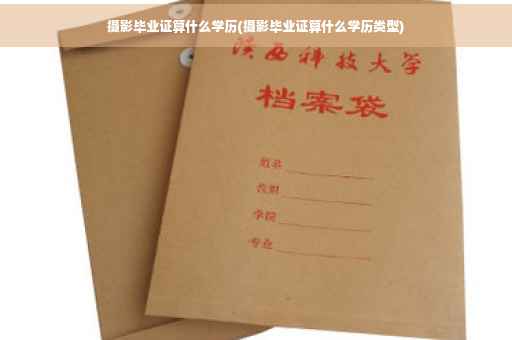 摄影毕业证算什么学历(摄影毕业证算什么学历类型)
陕西科技大学
档案袋
姓名
学院
专业